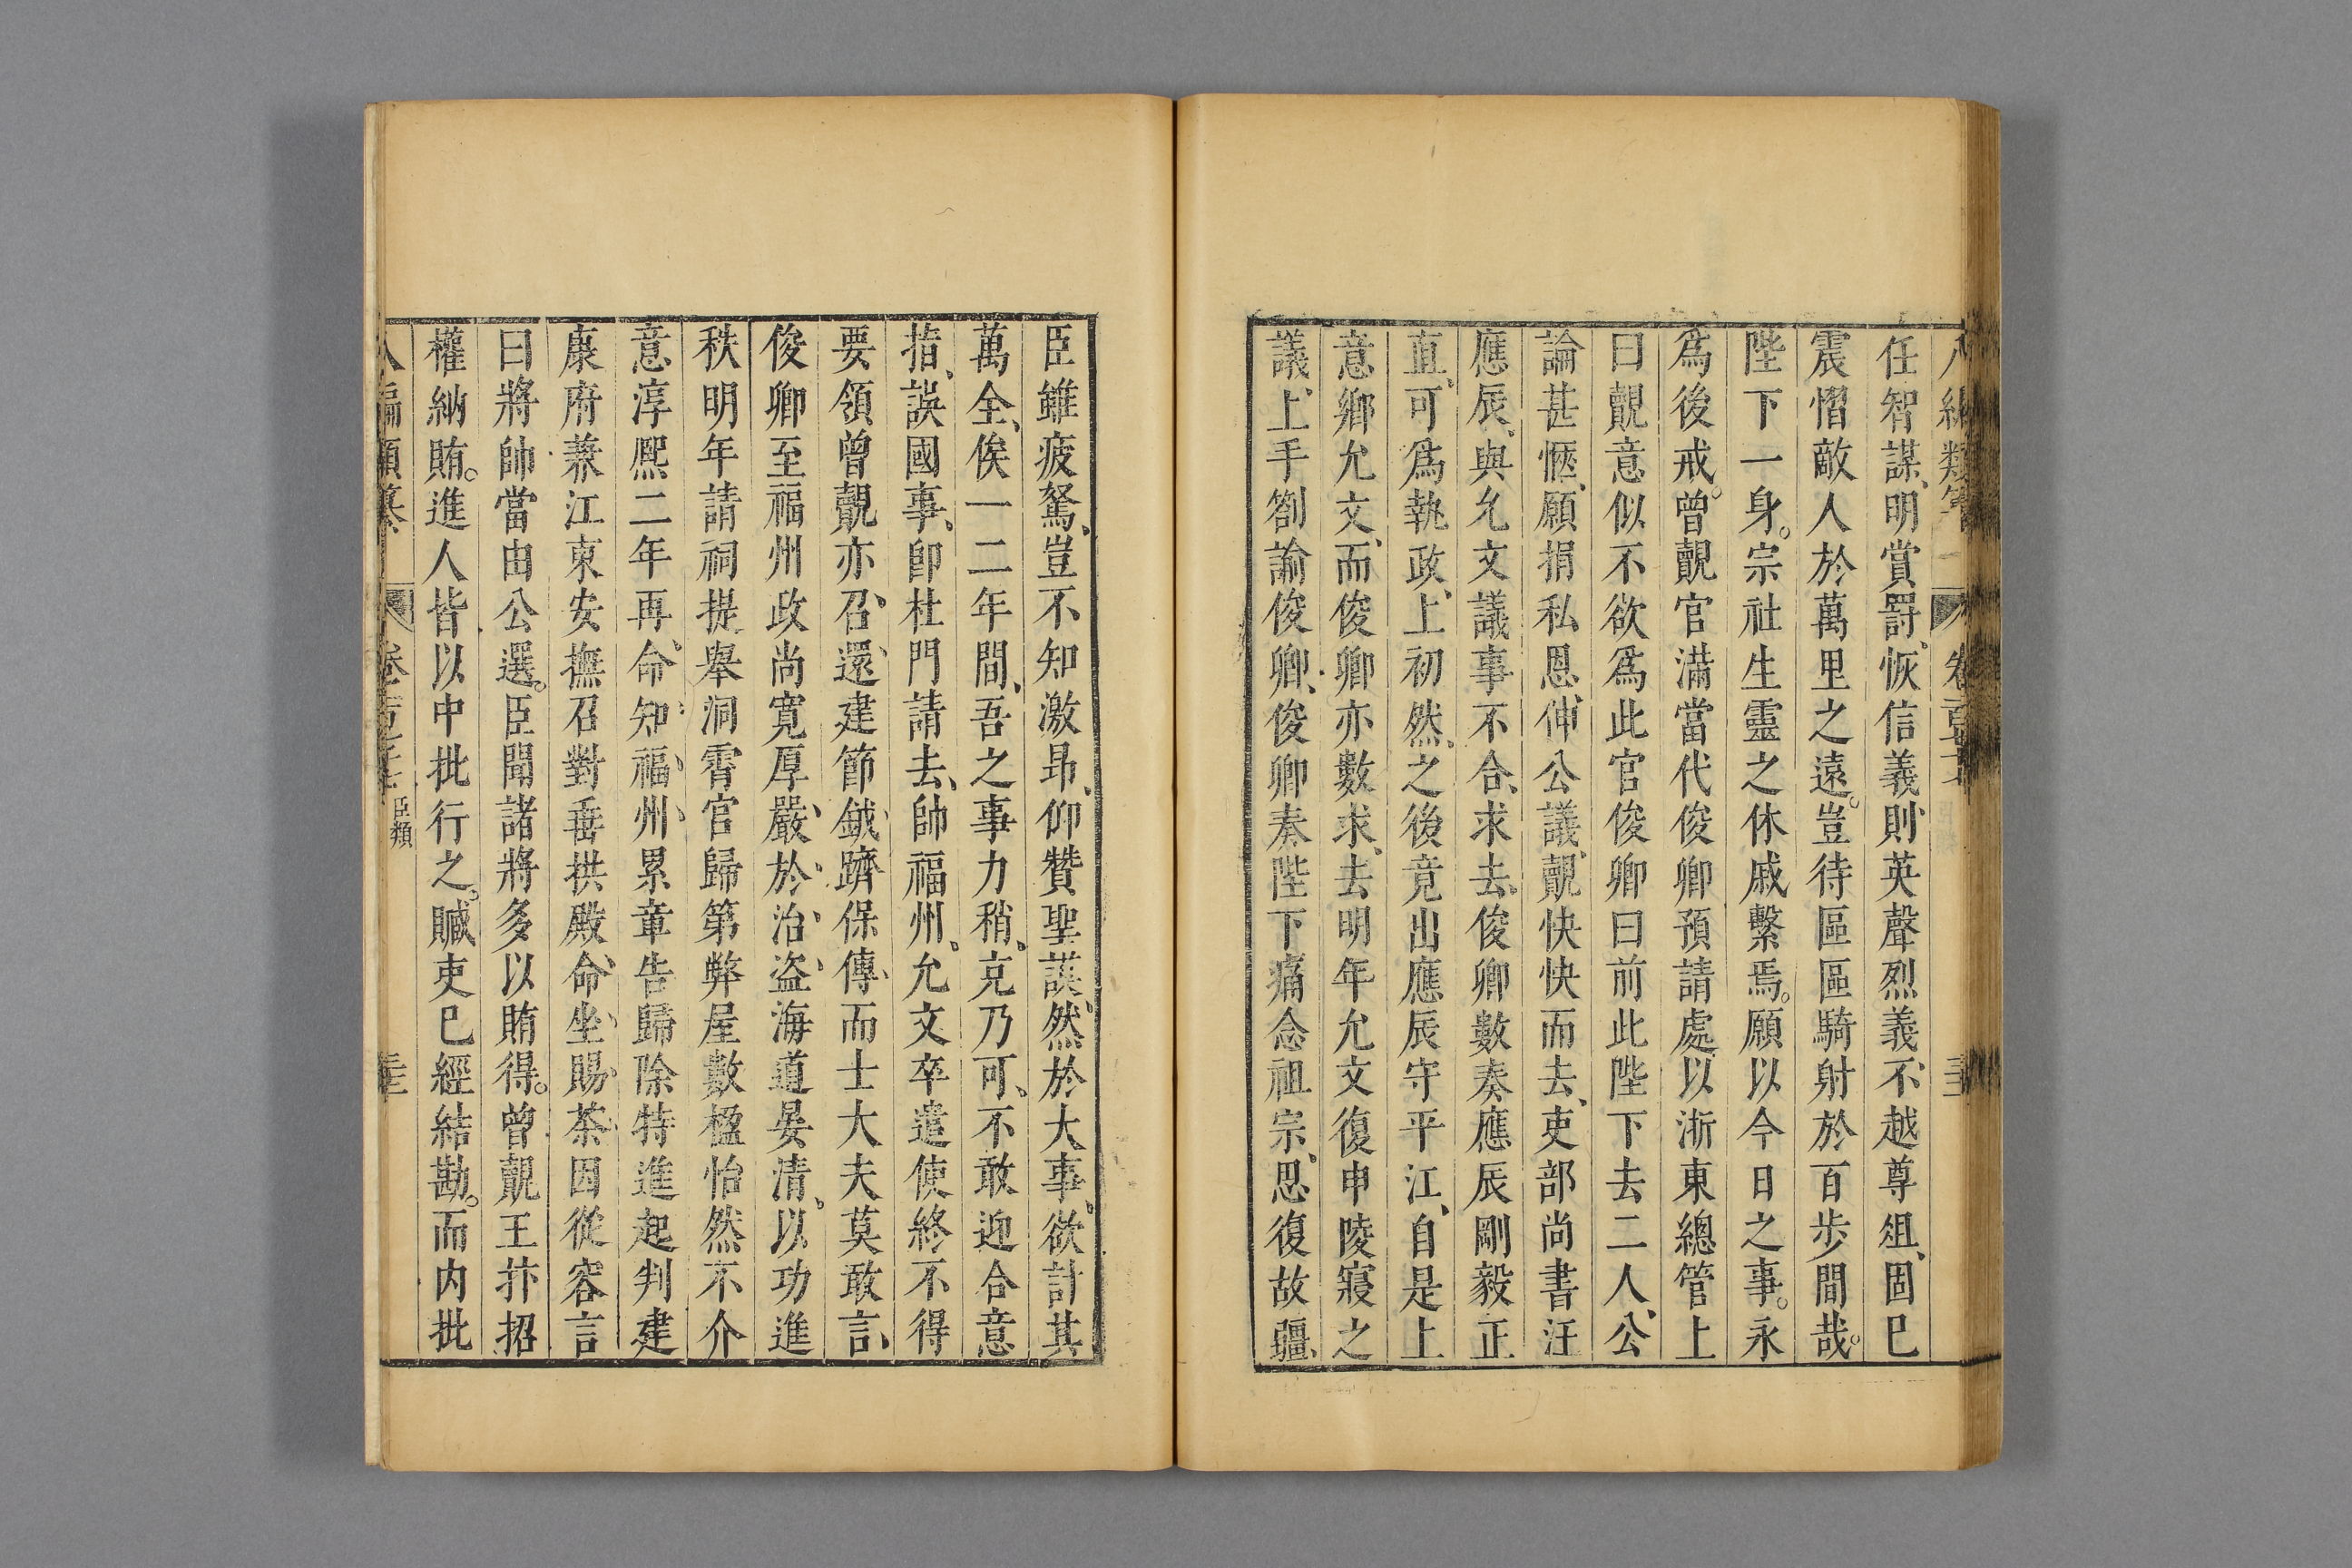 任智謀、明賞罰、恢信義、則英聲烈義、不越尊俎、固已
震慴敵人於萬里之遠。豈待區區騎射於百步間哉。
陛下一身。宗社生靈之休戚繫焉。願以今日之事。永
爲後戒。曾覿官滿當代俊卿預請處以浙東總管上
曰覿意似不欲爲此官俊卿曰前此陛下去二人、公
論甚愜、願捐私恩、伸公議、覿快快而去、吏部尚書汪
應辰、與允文議事不合、求去、俊卿數奏應辰剛毅正
直、可爲執政、上初然、之後竟出應辰守平江、自是上
意鄉允文、而俊卿亦數求、去明年允文復申陵寢之
議、上手劄諭俊卿、俊卿奏陛下痛念祖宗、思復故疆、
臣雖疲駑、豈不知激昂、仰贊聖謨、然於大事、欲計其
萬全、俟一二年間、吾之事力稍、克乃可、不敢迎合意
指、誤國事、卽杜門請去、帥福州、允文卒遣使終不得
要領曾覿亦、召、還、建節、鉞、躋保傅、而士大夫莫敢言、
俊卿至福州政尚寬厚、嚴、於、治、盗、海道晏清。以功進
秩明年請祠提舉洞霄官歸第弊屋數楹怡然不介
意淳熙二年再、命、知、福、州、累章告歸除特進起判建
康府兼江東安撫召對垂拱殿、命、坐、賜、茶、因從容言
曰將帥當由公選。臣聞諸將多以賄得。曾覿王抃招
權納賄。進人皆以中批行之。贓吏已經結勘。而内批